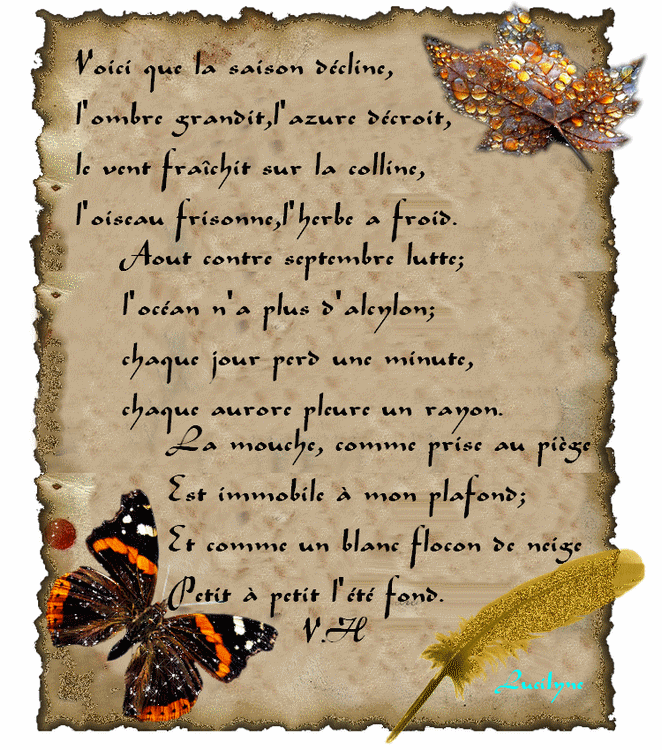 Voici que la saison décline,
l'ombre grandit,l'azure décroit,
le vent fraîchit sur la colline,
l'oiseau frisonne,l'herbe a froid.
Aout contre septembre lutte;
l'océan n'a plus d'alcylon;
chaque jour perd une minute,
chaque aurore pleure un rayon.
La mouche, comme prise au piège
Est immobile à mon plafond;
Et comme un blanc flocon de neige
Petit à petit l'été fond.
V H